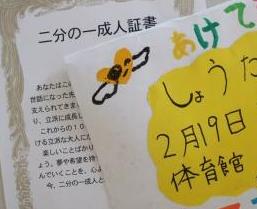 二分の一成人証書
あなたはこ
世話になった先
支えられてきま
り、立派に成長し
これからの１０
ける立派な大人に
楽しいことばかり
ょう。夢や希望を持
んでいくことを、心よ
今、二分の一成人と
あけて
しょうた
2月19日
体育館